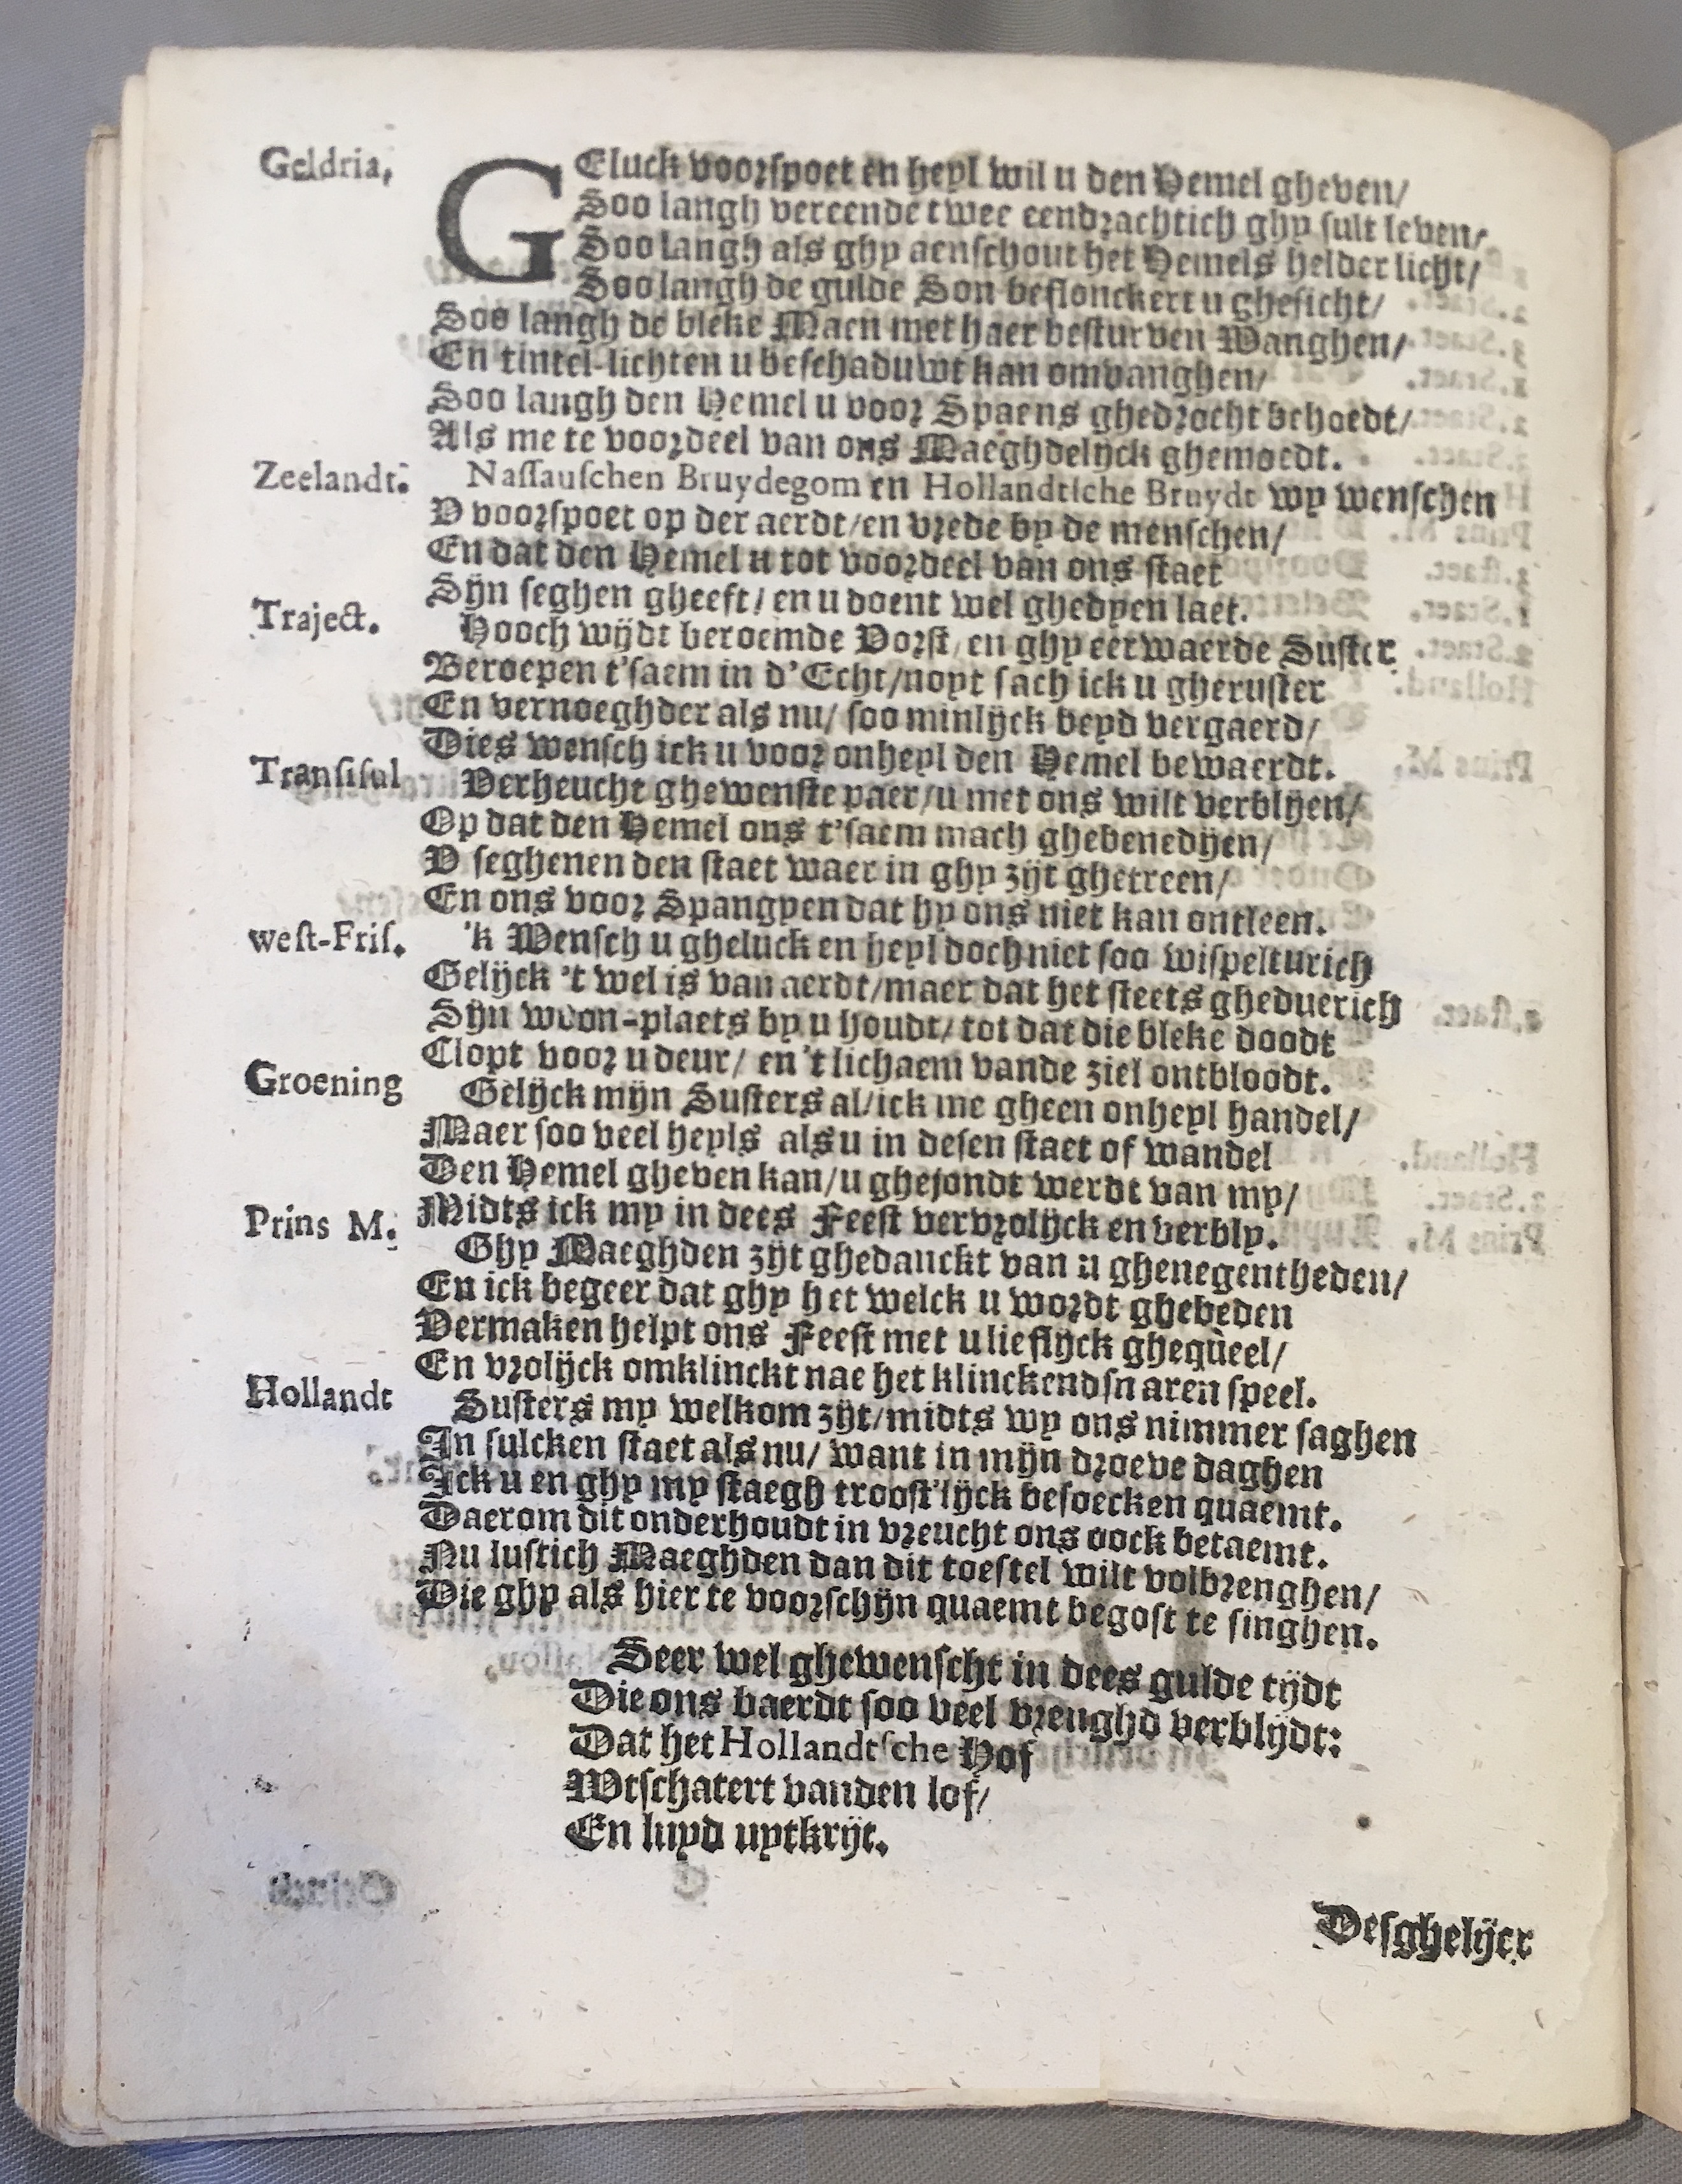 Geldria, GEluck voorſpoet en heyl wil u den Hemel gheven/
Soo langh vereende twee eendrachtich ghy ſult leven/
Soo langh als ghy aenſchout het Hemels helder licht/
Soo langh de gulde Son beflonckert u gheſicht/
Soo langh de bleke Maen met haer beſturven Wanghen/
En tintel-lichten u beſchaduwt kan omvanghen/
Soo langh den Hemel u voor Spaens ghedrocht behoedt/
Als me te voordeel van ons Maeghdelijck ghemoedt.
Zeelandt. Naſſauſchen Bruydegom en Hollandtſche Bruydt wy wenſchen
V voorſpoet op der aerdt/en vrede by de menſchen/
En dat den Hemel u tot voordeel van ons ſtaet
Sijn ſeghen gheeft/ en u doent wel ghedyen laet.
Traject. Hooch wijdt beroemde Vorſt/ en ghy eerwaerde Suſter
Beroepen t'ſaem in d'Echt/noyt ſach ick u gheruſter
En vernoeghder als nu/ ſoo minlijck beyd vergaerd/
Dies wenſch ick u voor onheyl den Hemel bewaerdt.
Tranſiſul Verheucht ghewenſte paer/u met ons wilt verblijen/
Op dat den Hemel ons t'ſaem mach ghebenedijen/
V ſeghenen den ſtaet waer in ghy zijt ghetreen/
En ons voor Spangyen dat hy ons niet kan ontleen.
weſt-Friſ. 'k Wenſch u gheluck en heyl doch niet ſoo wiſpelturich
Gelijck 't wel is van aerdt/maer dat het ſteets gheduerich
Sijn woon-plaets by u houdt/ tot dat die bleke doodt
Clopt voor u deur/ en 't lichaem vande ziel ontbloodt.
Groening Gelijck mijn Suſters al/ick me gheen onheyl handel/
Maer ſoo veel heyls als u in deſen ſtaet of wandel
Den Hemel gheven kan/u ghejondt werdt van my/
Midts ick my in dees Feeſt vervrolijck en verbly.
Prins M. Ghy Maeghden zijt ghedanckt van u ghenegentheden/
En ick begeer dat ghy het welck u wordt ghebeden
Vermaken helpt ons Feeſt met u lieflijck ghequeel/
En vrolijck omklinckt nae het klinckend ſnaren ſpeel.
Hollandt Suſters my welkom zijt/midts wy ons nimmer ſaghen
In ſulcken ſtaet als nu/ want in mijn droeve daghen
Ick u en ghy my ſtaegh trooſt'lijck beſoecken quaemt.
Daerom dit onderhoudt in vreucht ons oock betaemt.
Nu luſtich Maeghden dan dit toeſtel wilt volbrenghen/
Die ghy als hier te voorſchijn quaemt begoſt te ſinghen.
Seer wel ghewenſcht in dees gulde tijdt
Die ons baerdt ſoo veel vreughd verblijdt:
Dat het Hollandtſche Hof
Wtſchatert vanden lof/
En luyd uytkrijt.
Deſghelijcx